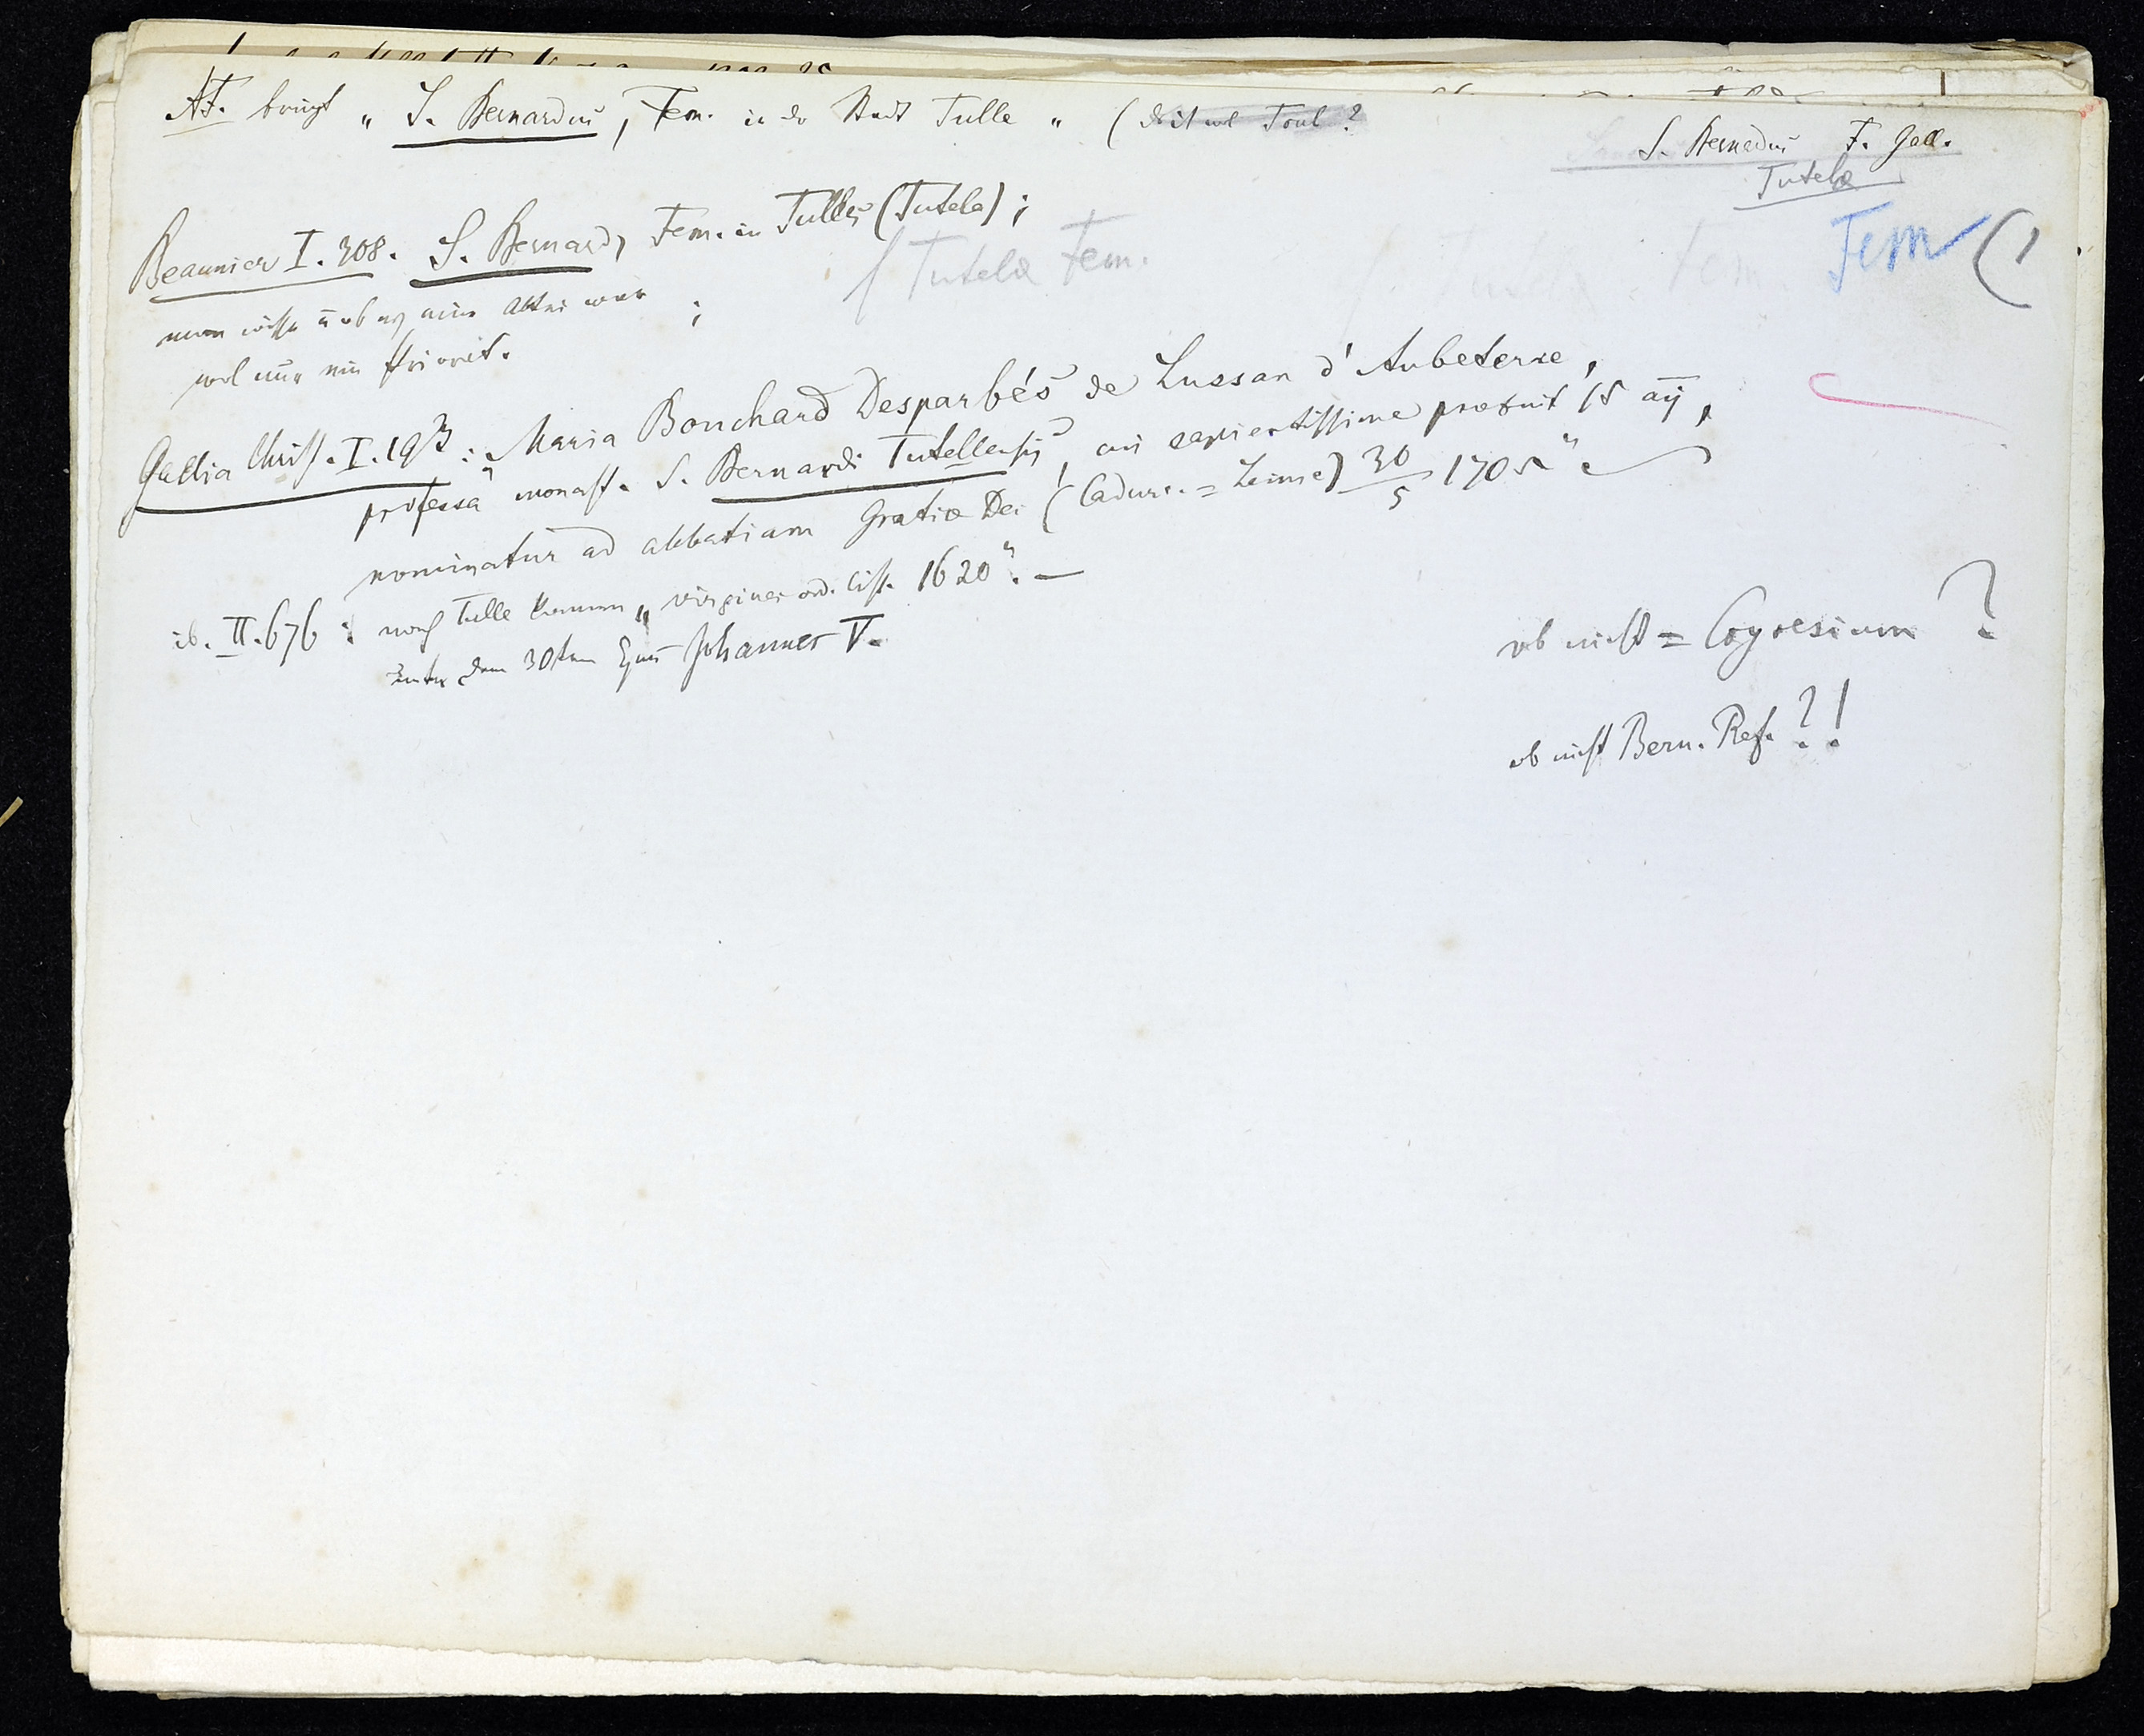 AF. bringt „ S. Bernardus, Fem. in der Stadt Tulle " (das ist wol Toul?
S. Bernardus F. Gall.
Tutela
Fem (1
Beaunier I. 308. S. Bernard, Fem. in Tulle, (Tutela);
f Tutela Fem.
man ob es eine Abtei war ;
wol nur ein Priorat.
Gallia Christ. I. 193: „Maria Bouchard Desparbés de Lussan d'Aubeterre,
professa monast. S. Bernardi Tutellensis, cui sapientissime praefuit 15 añ,
nominatur ad abbatiam Gratiae Dei (Cadurc. = Leime) 30/5 1705"
ib. II. 676: nach Tulle kamen „virgines ord. Cist. 1620". —
unter dem 30ten Johannes V.
ob nicht = Coyresium ?
ob nicht Bern. Ref. ?!